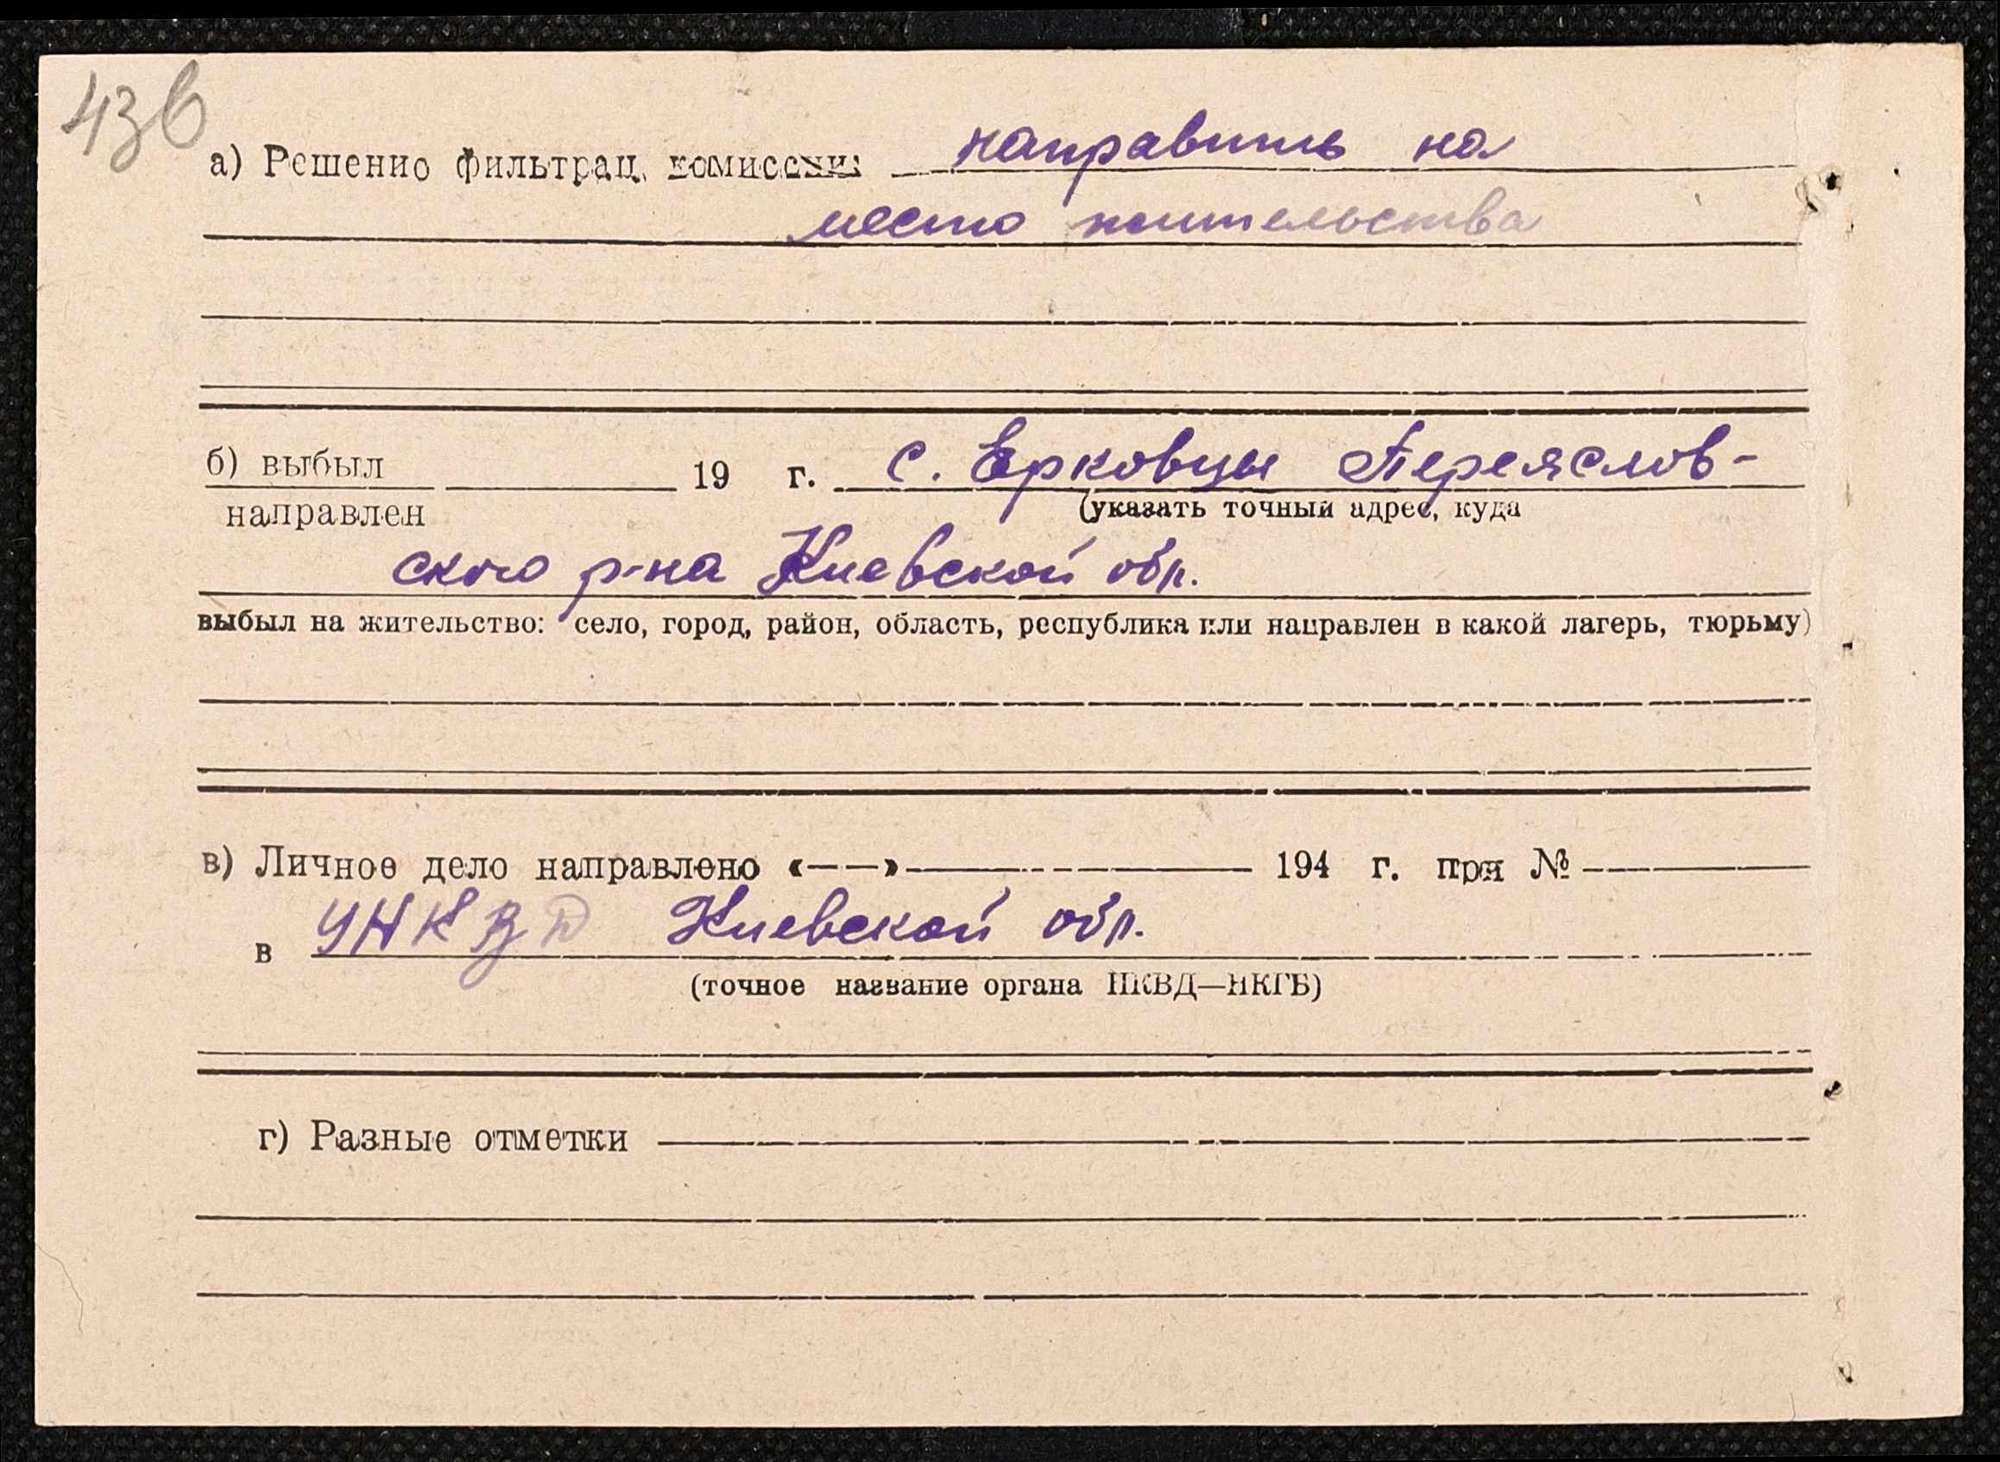 43в
а) Решение фильтрац. комиссии: направить на
место жительства
б) выбыл 19 г. с. Ерковцы Переяслов-
направлен (указать точный адрес, куда
ского р-на Киевской обл.
выбыл на жительство: село, город, район, область, республика или направлен в какой лагерь, тюрьму)
в) Личное дело направлено «——» 194 г. при №
в УНКВД Киевской обл.
(точное название органа НКВД—НКГБ)
г) Разные отметки